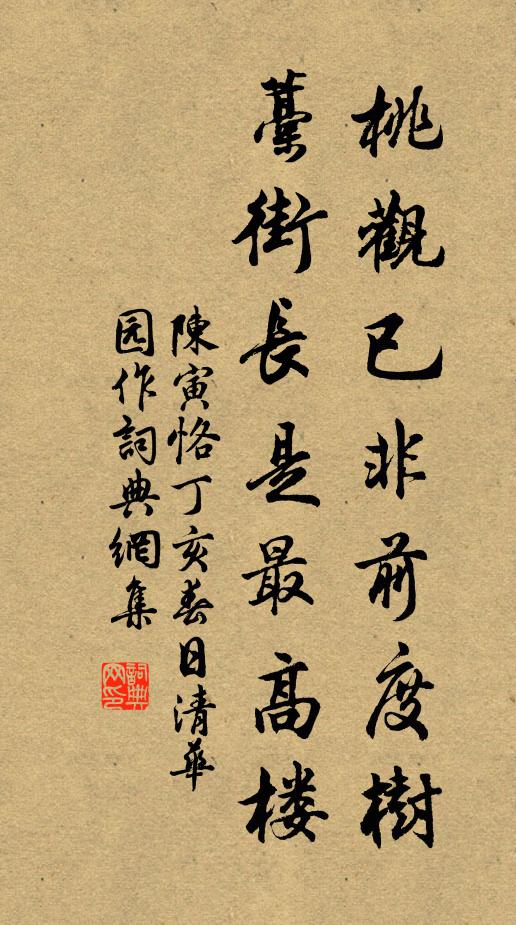 桃觀已非前度樹
藁街長是最高楼
陳寅恪丁亥春日清華
园作詞典網集
詞典網印